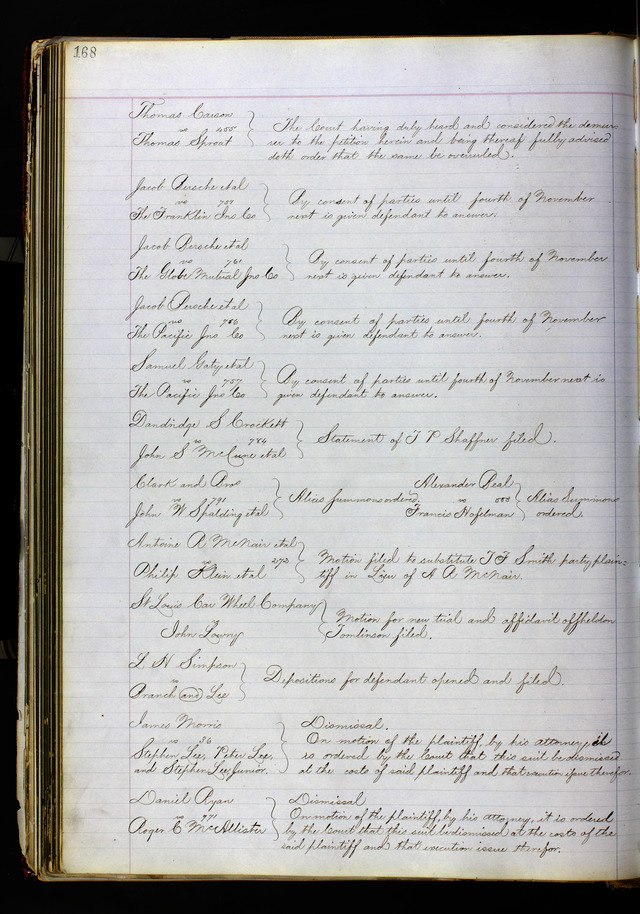 168
Thomas Carson
vs 455
Thomas Sproat
The Court having duly heard and considered the demur-
rer to the petition herein and being thereof fully advised
doth order that the same be overruled.
Jacob Dersche et al
vs
The Franklin Ins Co
By consent of parties until fourth of November
next is given defendant to answer.
Jacob Dersche et al
vs 761
The Globe Mutual Ins Co
By consent of parties until fourth of November
next is given defendant to answer.
Jacob Dersche et al
vs
The Pacific Ins Co
By consent of parties until fourth of November
next is given defendant to answer.
Samuel Gaty et al
vs 757
The Pacific Ins Co
By consent of parties until fourth of November next is
given defendant to answer.
Dandridge S Crockett
vs 784
John S McCune et al
Statement of T P Shaffner filed.
Clark and Bros
vs 791
John W Spalding et al
Alias Summons ordered.
Alexander Peal
vs
Francis Hofelman
Alias Summons
ordered.
Antoine R McNair et al
vs 273
Philip Klein et al
Motion filed to substitute T F Smith party plain-
tiff in Lieu of A R McNair.
St Louis Car Wheel Company
vs
John Lowry
Motion for new trial and affidavit of Sheldon
Tomlinson filed.
L H Simpson
vs
Branch and Lee
Depositions for defendant opened and filed.
James Morris
vs 56
Stephen Lee, Peter Lee,
and Stephen Lee Junior.
Dismissal.
On motion of the plaintiff, by his attorney, it
is ordered by the Court that this suit be dismissed
at the costs of said plaintiff and that execution issue therefor.
Daniel Ryan
vs 971
Roger C McAllister
Dismissal
On motion of the plaintiff, by his attorney, it is ordered
by the Court that this suit be dismissed at the costs of the
said plaintiff and that execution issue therefor.